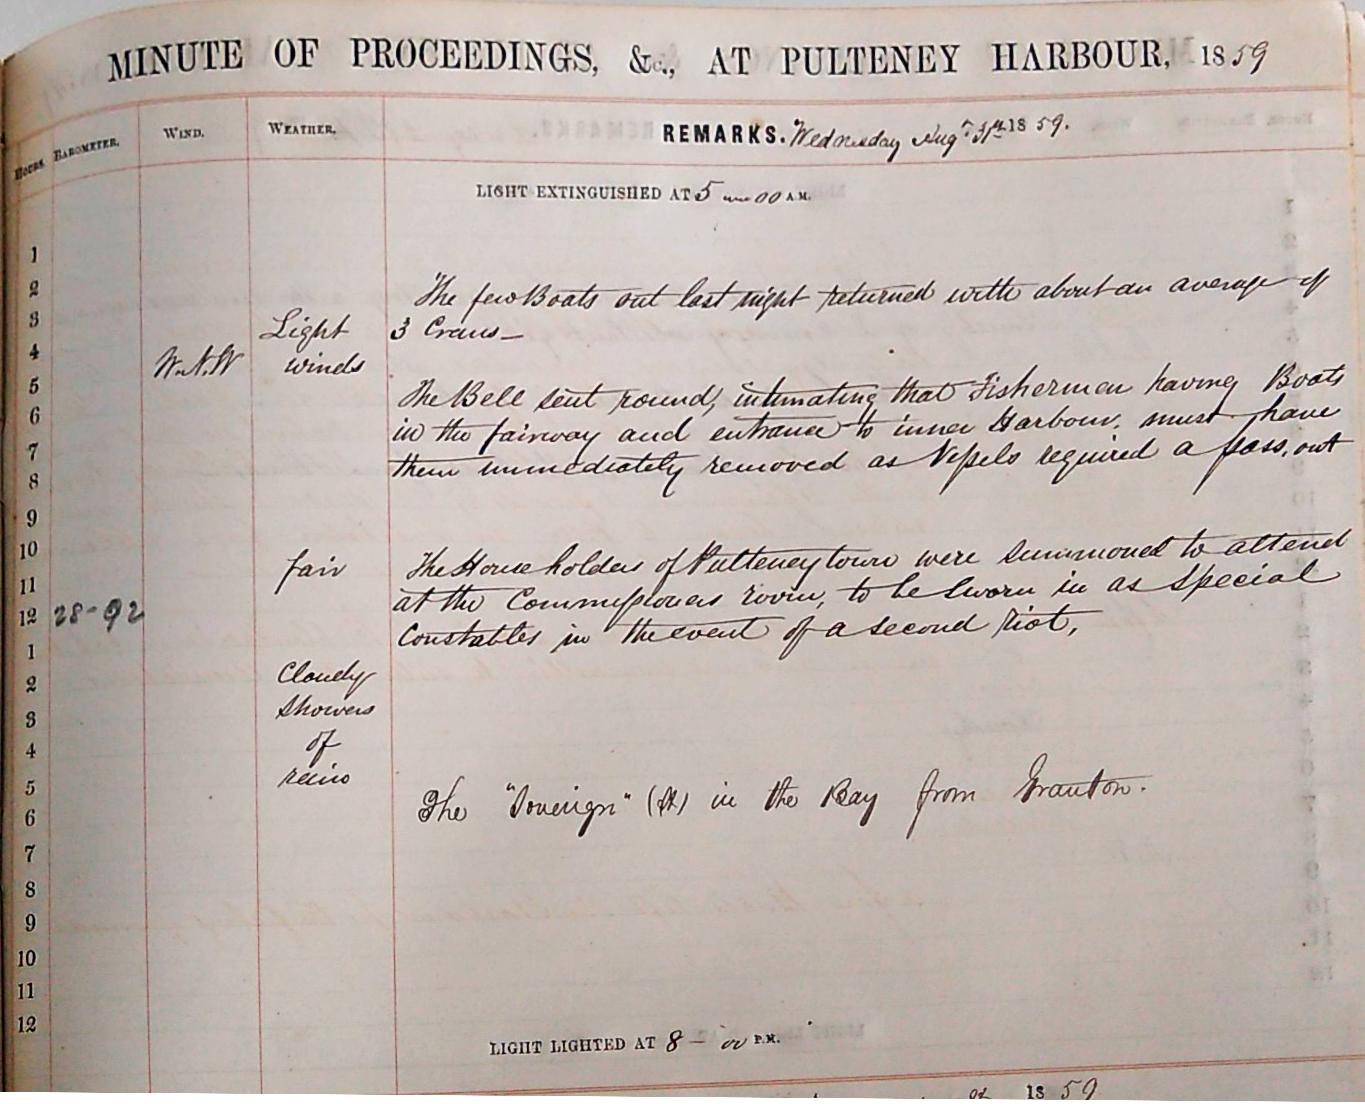 MINUTE OF PROCEEDINGS, &c., AT PULTENEY HARBOUR, 1859
HOURS. BAROMETER. WIND. WEATHER. REMARKS. Wednesday Augt 31st 1859.
LIGHT EXTINGUISHED AT 5 — 00 A.M.
1
2 The few Boats out last night returned with about an average of
3 Light 3 Crans —
4 W.N.W winds
5 The Bell sent round, intimating that Fishermen having Boats
6 in the fairway and entrance to inner Harbour, must have
7 them immediately removed as Vessels required a pass, out
8
9
10 fair The House holders of Pulteneytown were summoned to attend
11 at the Commissioners room, to be Sworn in as Special
12 28-92 Constables in the event of a second riot,
1
2 Cloudy
3 Showers
4 of
5 rain
6 The "Soverign" (St) in the Bay from Granton.
7
8
9
10
11
12
LIGHT LIGHTED AT 8 — 00 P.M.
1859